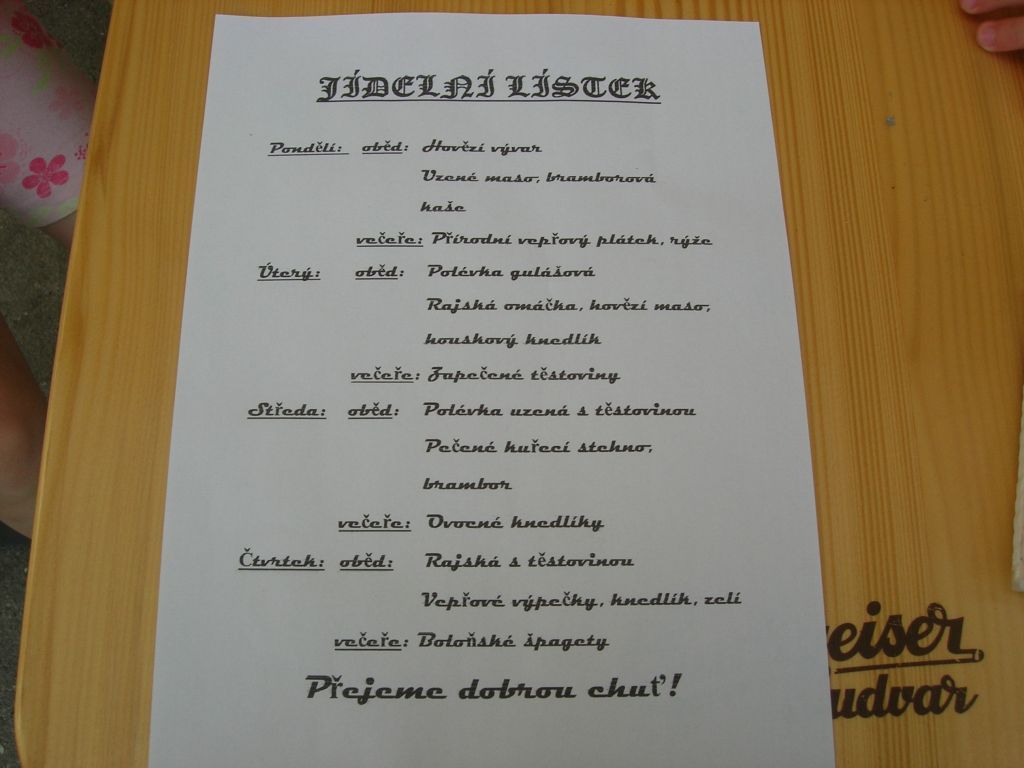 JÍDELNÍ LÍSTEK
Pondělí: oběd: Hovězí vývar
Uzené maso, bramborová
kaše
večeře: Přírodní vepřový plátek, rýže
Úterý: oběd: Polévka gulášová
Rajská omáčka, hovězí maso,
houskový knedlík
večeře: Zapečené těstoviny
Středa: oběd: Polévka uzená s těstovinou
Pečené kuřecí stehno,
brambor
večeře: Ovocné knedlíky
Čtvrtek: oběd: Rajská s těstovinou
Vepřové výpečky, knedlík, zelí
večeře: Boloňské špagety
Přejeme dobrou chuť!
eiser
udvar